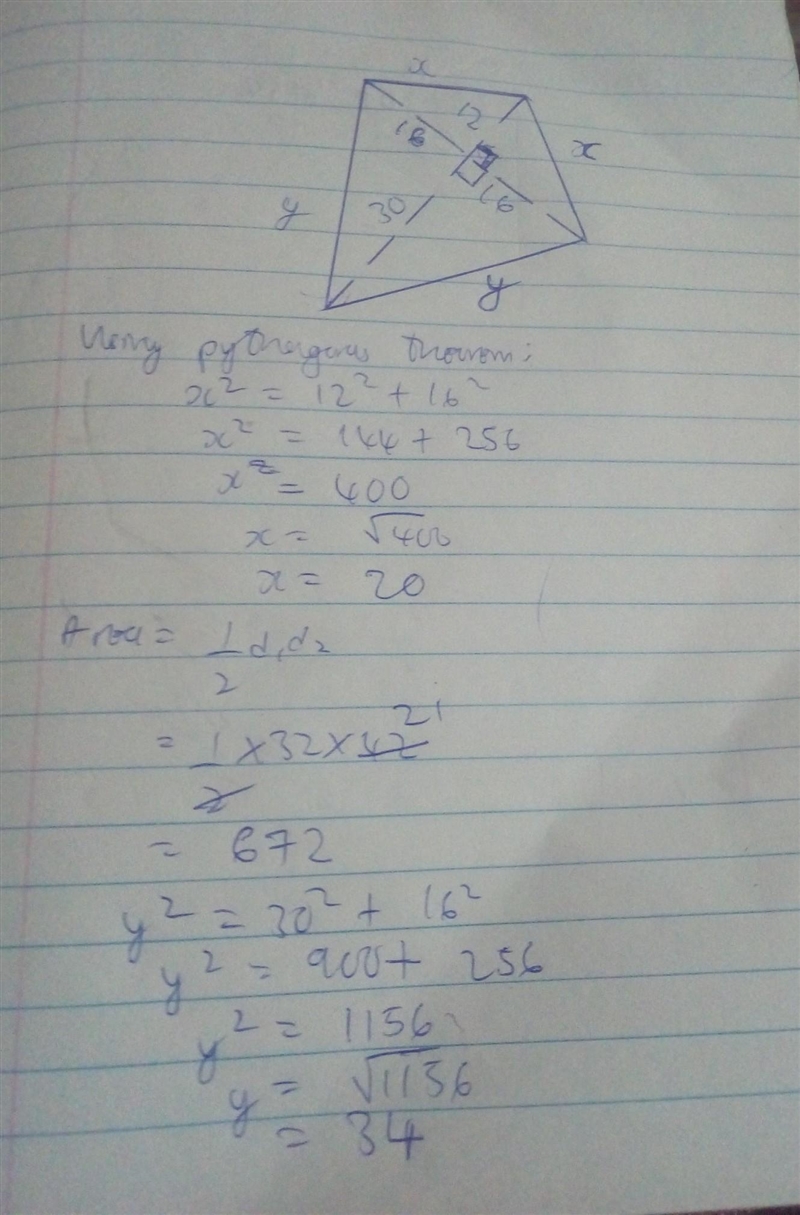 x
12
16
x
16
30
y
y
Using pythagoras theorem:
x² = 12² + 16²
x² = 144 + 256
x² = 400
x = √400
x = 20
Area = 1/2 d₁d₂
= 1/2 × 32 × 42 21
= 672
y² = 30² + 16²
y² = 900 + 256
y² = 1156
y = √1156
= 34